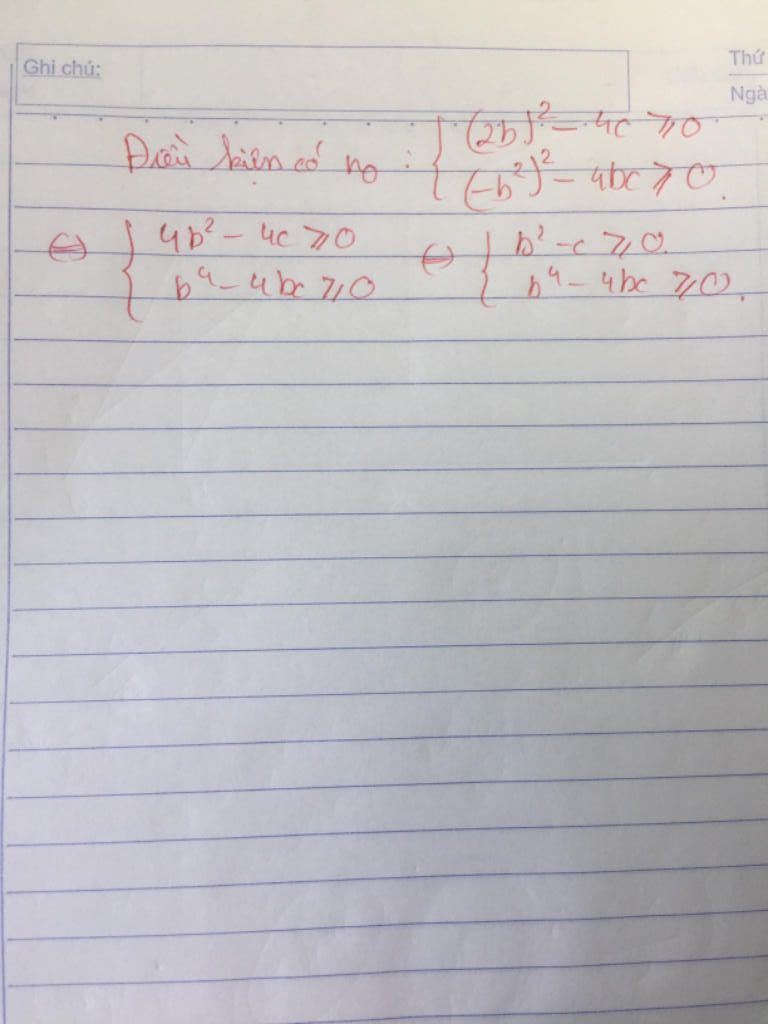 Ghi chú:
Thứ
Ngà
Điều kiện có no : { (2b)² - 4c ⩾ 0
(-b²)² - 4bc ⩾ 0.
⇔ { 4b² - 4c ⩾ 0 ⇔ { b² - c ⩾ 0.
b⁴ - 4bc ⩾ 0 b⁴ - 4bc ⩾ 0.